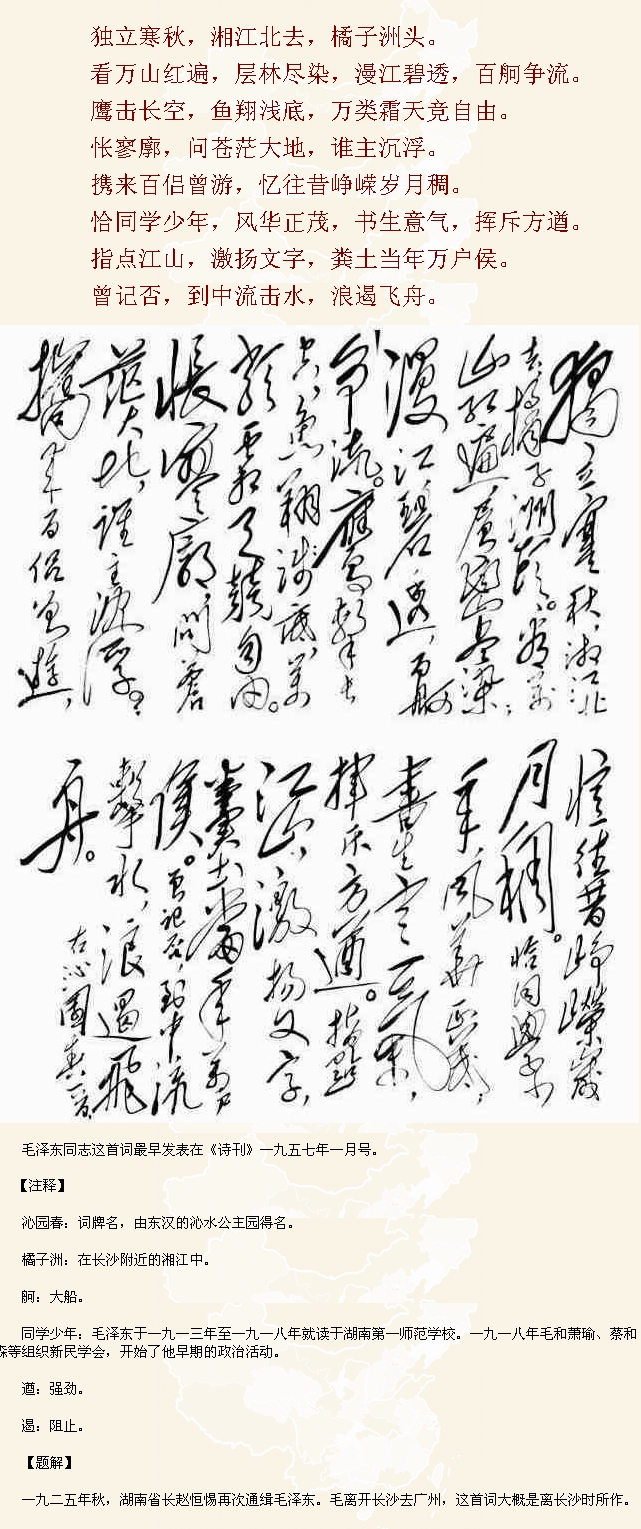 独立寒秋，湘江北去，橘子洲头。
看万山红遍，层林尽染，漫江碧透，百舸争流。
鹰击长空，鱼翔浅底，万类霜天竞自由。
怅寥廓，问苍茫大地，谁主沉浮。
携来百侣曾游，忆往昔峥嵘岁月稠。
恰同学少年，风华正茂，书生意气，挥斥方遒。
指点江山，激扬文字，粪土当年万户侯。
曾记否，到中流击水，浪遏飞舟。
獨立寒秋，湘江北
去，橘子洲頭。看萬
山紅遍，層林盡染；
漫江碧透，百舸
爭流。鷹擊長
空，魚翔淺底，萬
類霜天競自由。
悵寥廓，問蒼
茫大地，誰主沉浮？
攜來百侶曾遊，
憶往昔崢嶸歲
月稠。恰同學少
年，風華正茂；
書生意氣，
揮斥方遒。指點
江山，激揚文字，
糞土當年萬戶
侯。曾記否，到中流
擊水，浪遏飛
舟。
右沁園春一首
毛泽东同志这首词最早发表在《诗刊》一九五七年一月号。
【注释】
沁园春：词牌名，由东汉的沁水公主园得名。
橘子洲：在长沙附近的湘江中。
舸：大船。
同学少年：毛泽东于一九一三年至一九一八年就读于湖南第一师范学校。一九一八年毛和萧瑜、蔡和
森等组织新民学会，开始了他早期的政治活动。
遒：强劲。
遏：阻止。
【题解】
一九二五年秋，湖南省长赵恒惕再次通缉毛泽东。毛离开长沙去广州，这首词大概是离长沙时所作。